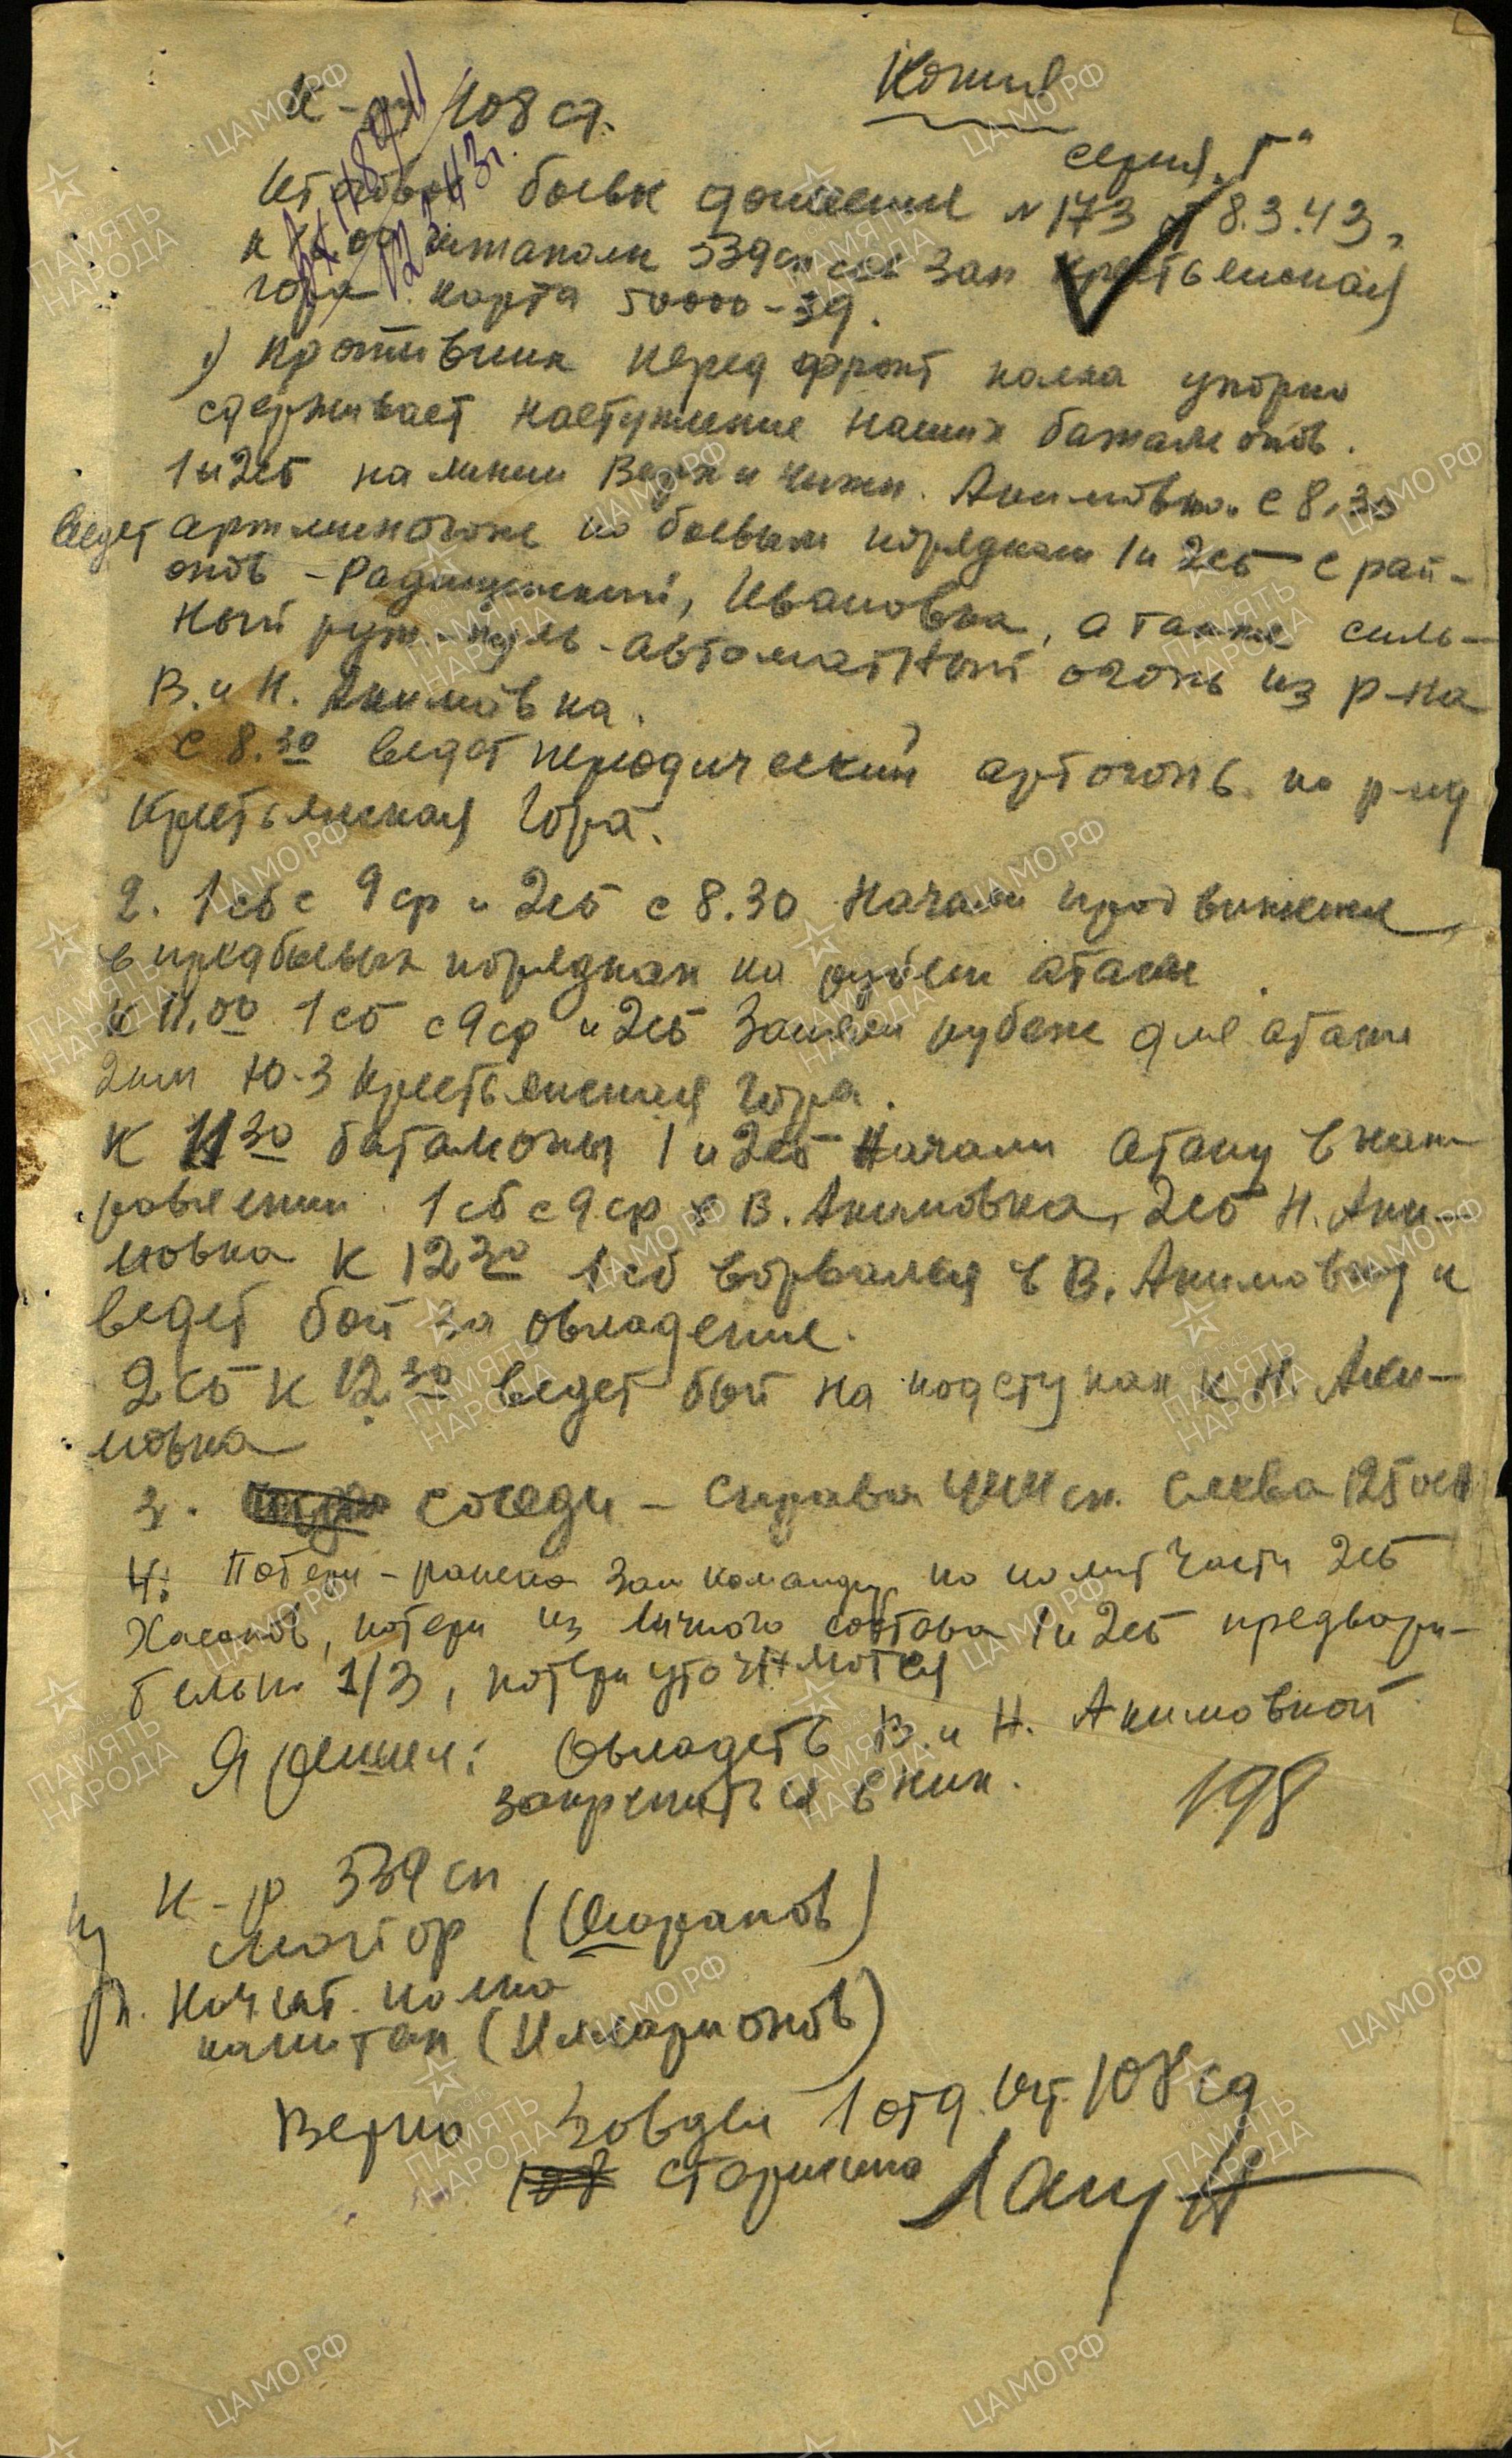 Копия
К-ру 108 сд.
серия "Г"
Штабом боевк донесение № 173 от 8.3.43,
к штаполк 539 сп сев зап Крестьянская
гора. карта 50000-39.
1) Противник перед фронт полка упорно
сдерживает наступление наших батальонов.
1 и 2сб на линии Верхн и Нижн. Акимовка. с 8.30
ведет артминогонь по боевым порядкам 1 и 2сб с рай-
онов - Радищенский, Ивановка, а также силь-
ный руж-пуль-автоматный огонь из р-на
В. и Н. Акимовка.
с 8.30 ведет периодический артогонь по р-ну
Крестьянская Гора.
2. 1сб с 9ср и 2сб с 8.30 начали продвижение
в предбоевых порядках на рубеж атаки
к 11.00 1сб с 9ср и 2сб заняли рубеж для атаки
2км Ю-З Крестьянская гора.
К 11 30 батальоны 1 и 2сб начали атаку в нап
равлении 1сб с 9ср В. Акимовка, 2сб Н. Аки-
мовка к 12 30 1сб ворвался в В. Акимовку и
ведет бой за овладение.
2сб к 12 30 ведет бой на подступах к Н. Аки-
мовка
3. соседи - справа 444 сп. слева 125
4. Потери - ранено зам команду по полит части 2сб
Хасанов, потери из личного состава 1 и 2сб предвари-
тельно 1/3, потери уточняются
Я решил: Овладеть В. и Н. Акимовкой
закрепиться в них.
198
К-р 539 сп
майор
Нач шт. полка
капитан (Илларионов)
Верно Завдел 1 отд. шт. 108 сд
старшина
ЦАМО.РФ
ПАМЯТЬ НАРОДА